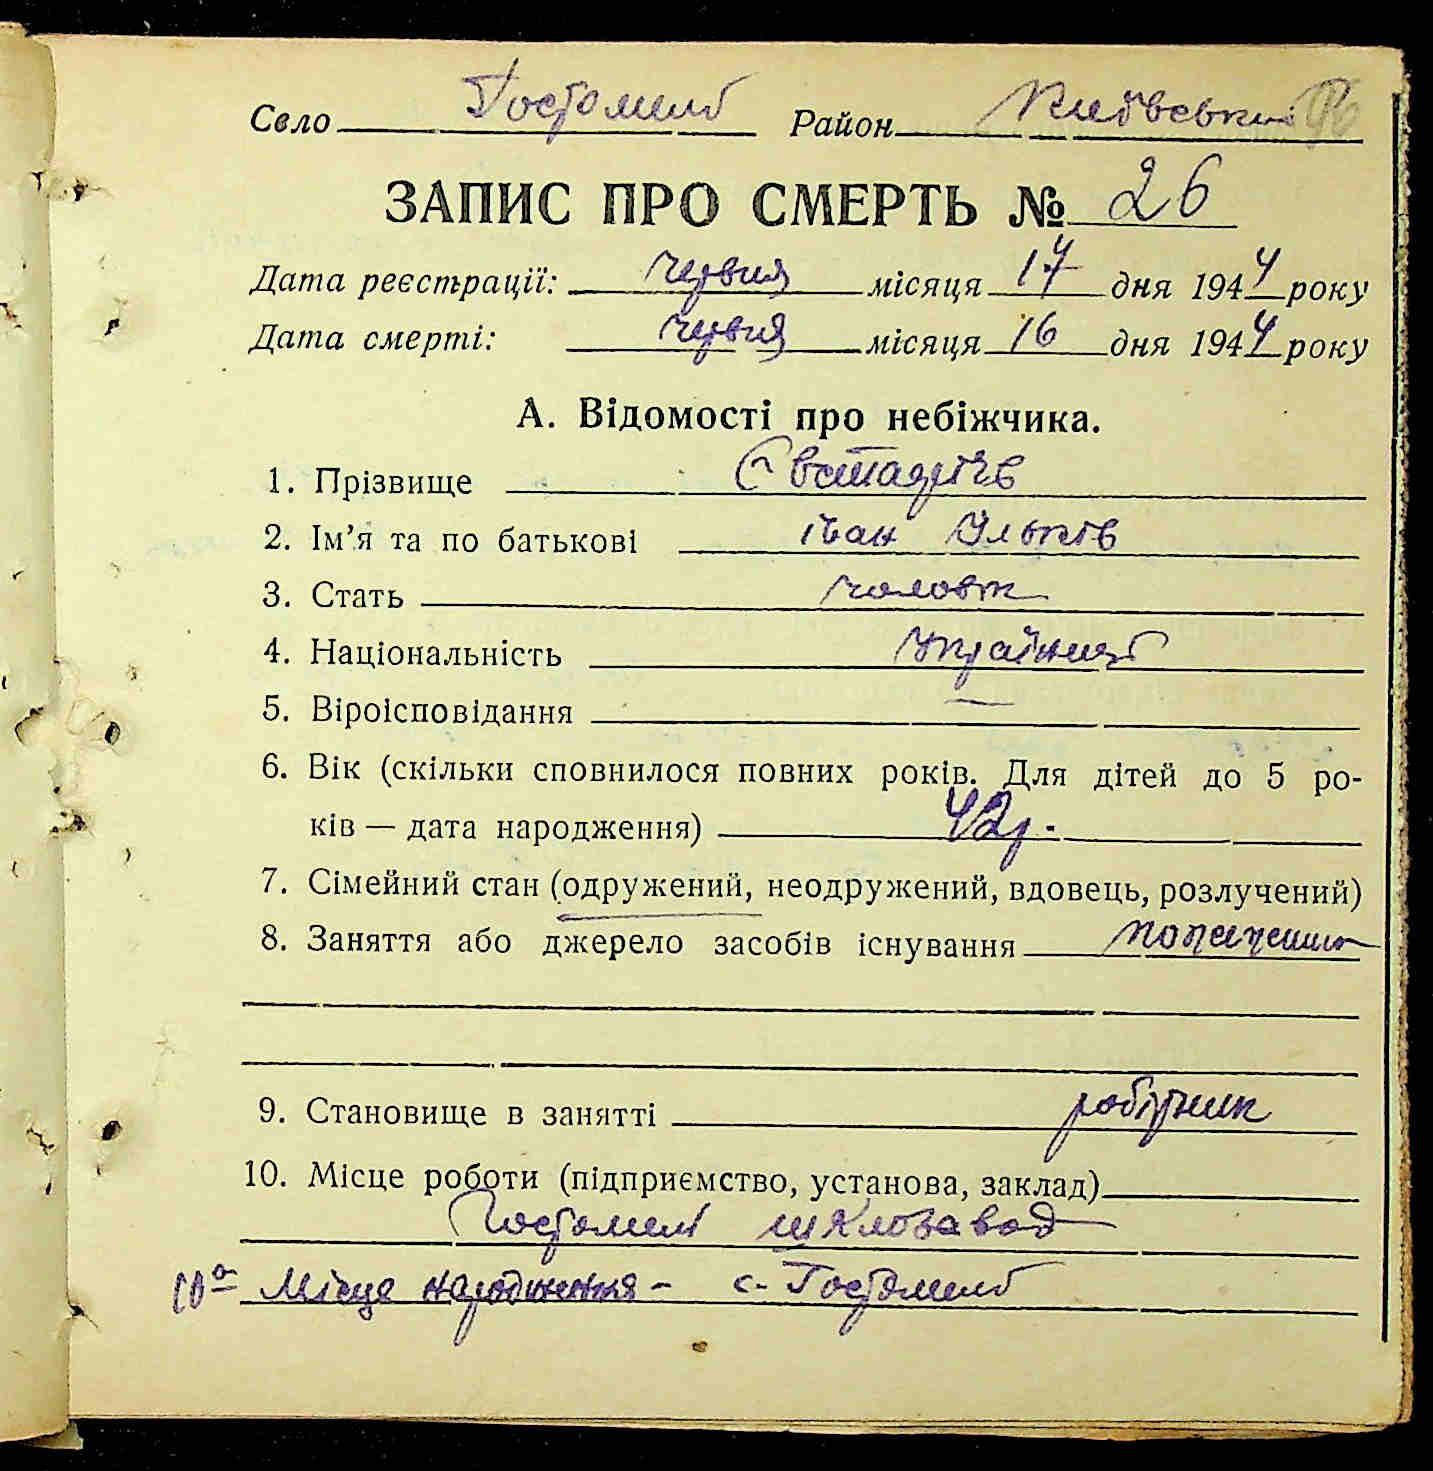 Село Гостомель Район Київський
ЗАПИС ПРО СМЕРТЬ № 26
Дата реєстрації: червня місяця 17 дня 1944 року
Дата смерті: червня місяця 16 дня 1944 року
А. Відомості про небіжчика.
1. Прізвище
2. Ім'я та по батькові Іван Ільків
3. Стать чоловік
4. Національність українець
5. Віроісповідання —
6. Вік (скільки сповнилося повних років. Для дітей до 5 ро-
ків — дата народження) 42 р.
7. Сімейний стан (одружений, неодружений, вдовець, розлучений)
8. Заняття або джерело засобів існування
9. Становище в занятті робітник
10. Місце роботи (підприємство, установа, заклад)
шклозавод
10а Місце народження - с. Гостомель